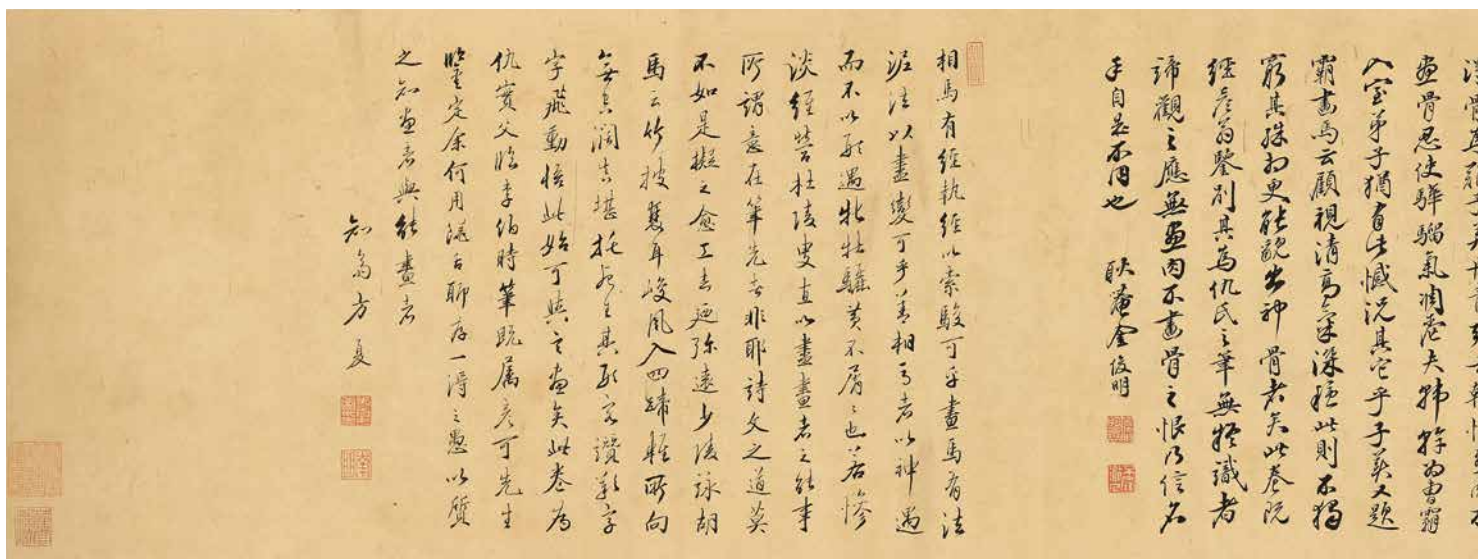 畫骨忍使驊騮氣凋喪夫韩幹為曹霸
入室弟子猶有此憾況其它乎子美又題
霸畫馬云顧視清高氣深穩此則不獨
窮其殊相更能出神骨者矣此卷既
經彥翁鑒別其為仇氏之筆無疑識者
諦觀之應無畫肉不畫骨之恨乃信名
手自是不同也 耿菴金俊明
相馬有經執經以索駿可乎畫馬有法
泥法以盡變可乎善相馬者以神遇
而不以形遇牝牡驪黃不屑〻也若慘
談經營杜陵叟直以盡畫者之能事
所謂意在筆先者非耶詩文之道莫
不如是擬之愈工去廼弥遠少陵詠胡
馬云竹披雙耳峻風入四蹄輕所向
無空闊真堪托死生其形容讚歎字
字飛動悟此始可與言畫矣此卷為
仇實父臨李伯時筆既屬彥可先生
鑒定余何用濡舌聊存一得之愚以質
之知畫者與能畫者
知翁方夏